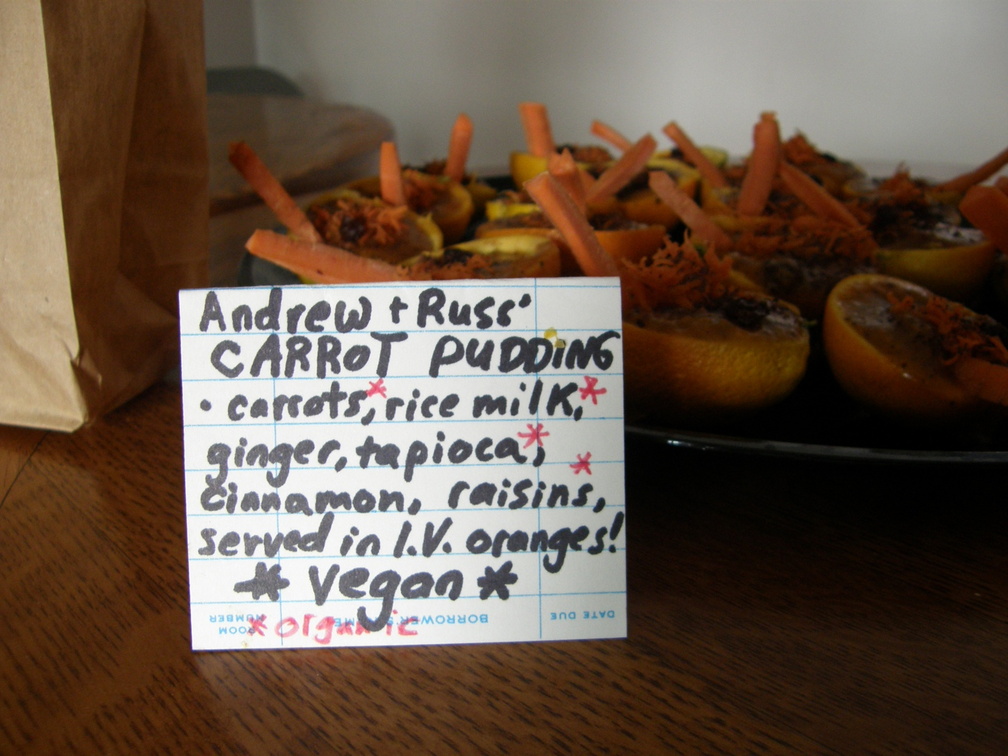 Andrew + Russ'
CARROT PUDDING
• carrots,* rice milk,*
ginger, tapioca,*
cinnamon, raisins,*
served in I.V. oranges!
* vegan *
* organic
DATE DUE BORROWER'S NAME ROOM NUMBER